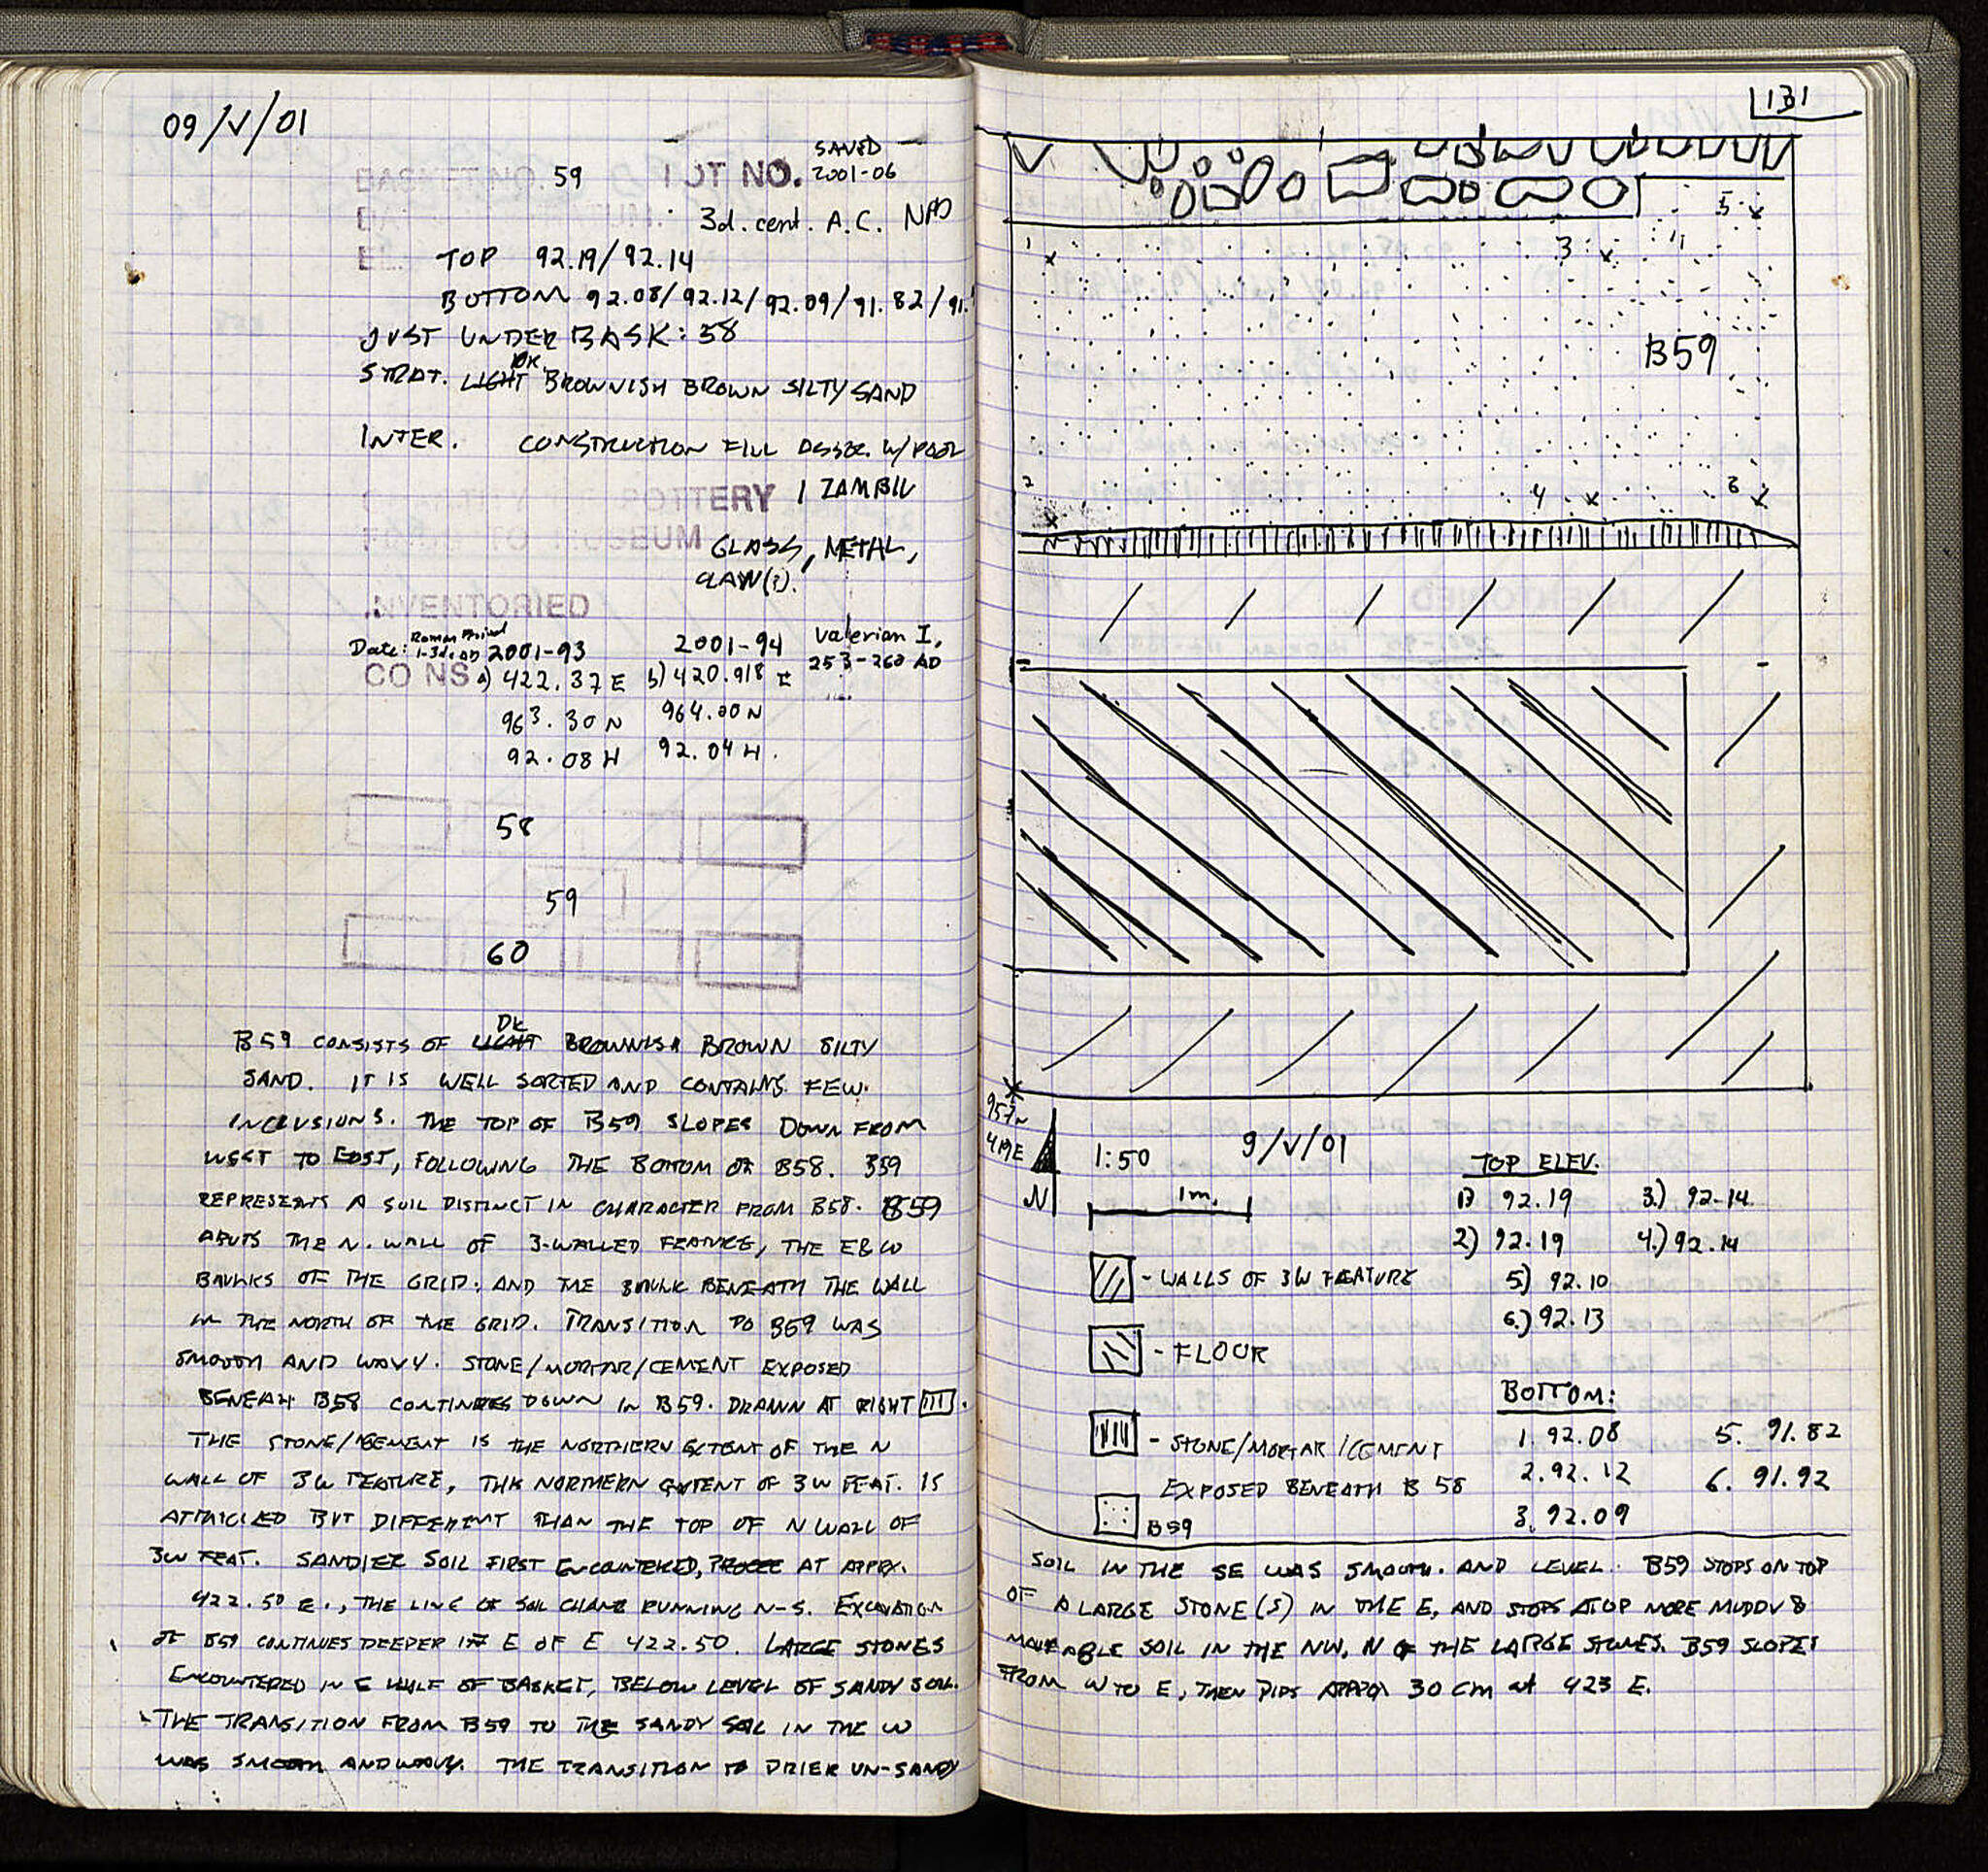 09/V/01
BASKET NO. 59 LOT NO. SAVED 2001-06
3d. cent. A.C. NAD
TOP 92.19/92.14
BOTTOM 92.08/92.12/92.09/91.82/91.
JUST UNDER BASK: 58
STRAT. LIGHT DK BROWNISH BROWN SILTY SAND
INTER. CONSTRUCTION FILL ASSOC. W/ POOL
POTTERY 1 ZAMBIL
TO MUSEUM GLASS, METAL,
CLAW(?).
INVENTORIED
Date: Roman Period 1-3d c AD 2001-93 2001-94 Valerian I, 253-260 AD
CO NS a) 422.37 E b) 420.918 E
963.30 N 964.00 N
92.08 H 92.04 H.
58
59
60
B59 CONSISTS OF LIGHT DK BROWNISH BROWN SILTY
SAND. IT IS WELL SORTED AND CONTAINS FEW
INCLUSIONS. THE TOP OF B59 SLOPES DOWN FROM
WEST TO EAST, FOLLOWING THE BOTTOM OF B58. B59
REPRESENTS A SOIL DISTINCT IN CHARACTER FROM B58. B59
ABUTS THE N. WALL OF 3-WALLED FEATURE, THE E & W
BAULKS OF THE GRID, AND THE BAULK BENEATH THE WALL
IN THE NORTH OF THE GRID. TRANSITION TO B59 WAS
SMOOTH AND WAVY. STONE/MORTAR/CEMENT EXPOSED
BENEATH B58 CONTINUES DOWN IN B59. DRAWN AT RIGHT.
THE STONE/CEMENT IS THE NORTHERN EXTENT OF THE N
WALL OF 3W FEATURE, THE NORTHERN EXTENT OF 3W FEAT. IS
ATTACHED BUT DIFFERENT THAN THE TOP OF N WALL OF
3W FEAT. SANDIER SOIL FIRST ENCOUNTERED, AT APPRX.
422.50 E., THE LINE OF SOIL CHANGE RUNNING N-S. EXCAVATION
OF B59 CONTINUES DEEPER E OF E 422.50. LARGE STONES
ENCOUNTERED IN E HALF OF BASKET, BELOW LEVEL OF SANDY SOIL.
THE TRANSITION FROM B59 TO THE SANDY SOIL IN THE W
WAS SMOOTH AND WAVY. THE TRANSITION TO DRIER UN-SANDY
131
5
1 3
B59
2 4 6
957 N
419 E
N
1:50 9/V/01
1m.
TOP ELEV.
1) 92.19 3.) 92.14
2) 92.19 4.) 92.14
5) 92.10
6.) 92.13
- WALLS OF 3W FEATURE
- FLOOR
- STONE/MORTAR/CEMENT
EXPOSED BENEATH B 58
B59
BOTTOM:
1. 92.08 5. 91.82
2. 92.12 6. 91.92
3. 92.09
SOIL IN THE SE WAS SMOOTH. AND LEVEL. B59 STOPS ON TOP
OF A LARGE STONE(S) IN THE E, AND STOPS ATOP MORE MUDDY &
MOVEABLE SOIL IN THE NW, N OF THE LARGE STONES. B59 SLOPES
FROM W TO E, THEN DIPS APPRX 30 cm at 423 E.